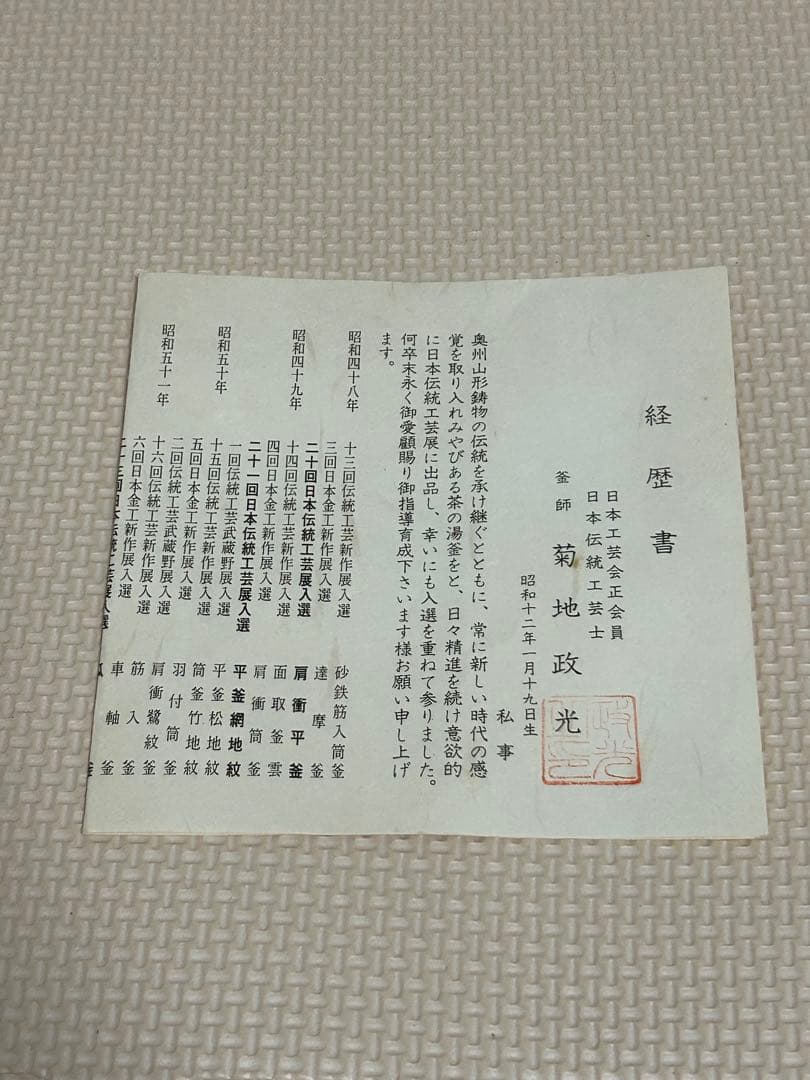 経歴書
日本工芸会正会員
日本伝統工芸士
釜師 菊地政光
昭和十二年一月十九日生
私事
奥州山形鋳物の伝統を承け継ぐとともに、常に新しい時代の感
覚を取り入れみやびある茶の湯釜をと、日々精進を続け意欲的
に日本伝統工芸展に出品し、幸いにも入選を重ねて参りました。
何卒末永く御愛顧賜り御指導育成下さいます様お願い申し上げ
ます。
昭和四十八年 十三回伝統工芸新作展入選 砂鉄筋入筒釜
三回日本金工新作展入選 達摩釜
二十回日本伝統工芸展入選 肩衝平釜
昭和四十九年 十四回伝統工芸新作展入選 面取釜雲
四回日本金工新作展入選 肩衝筒釜
二十一回日本伝統工芸展入選 平釜網地紋
一回伝統工芸武蔵野展入選 平釜松地紋
昭和五十年 十五回伝統工芸新作展入選 筒釜竹地紋
五回日本金工新作展入選 羽付筒釜
二回伝統工芸武蔵野展入選 肩衝鷺紋
昭和五十一年 十六回伝統工芸新作展入選 筋入釜
六回日本金工新作展入選 車軸釜
二十三回日本伝統工芸展入選 釜